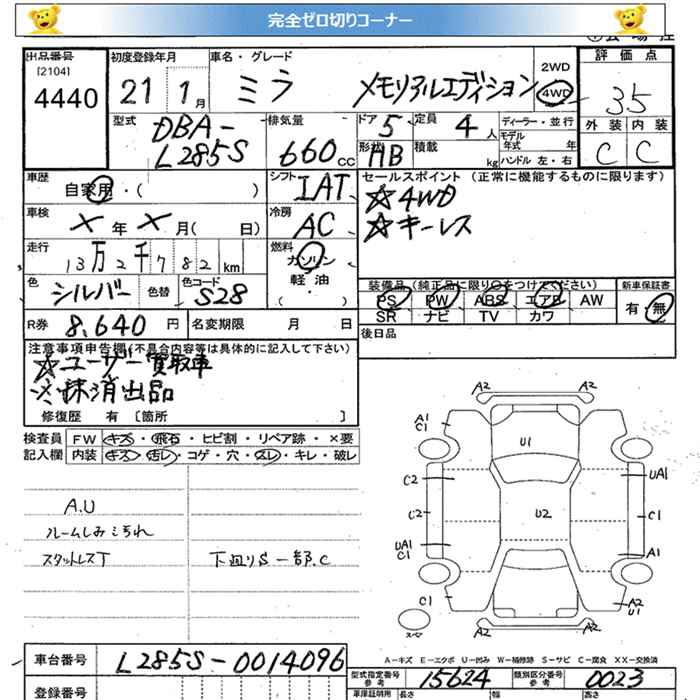 完全ゼロ切りコーナー
出品番号 初度登録年月 車名・グレード 2WD 評価点
[2104]
4440 21 1月 ミラ メモリアルエディション 4WD 3.5
型式 DBA-L285S 排気量 660cc ドア 5 定員 4人 ディーラー・並行 外装 内装
形状 HB 積載 kg モデル年式 年 C C
ハンドル 左・右
車歴 自家用・( ) シフト IAT セールスポイント (正常に機能するものに限ります)
☆4WD
車検 ×年×月( 日) 冷房 AC ☆キーレス
走行 13万2千782km 燃料 ガソリン
軽油
・( )
色 シルバー 色替 色コード S28 装備品(純正品に限り○をつけてください) 新車保証書
PS PW ABS エアB AW 有・無
R券 8,640円 名変期限 月 日 SR ナビ TV カワ
後日品
注意事項申告欄(不具合内容等は具体的に記入して下さい)
☆ユーザー買取車
※抹消出品
修復歴 有 [箇所 ]
検査員 FW キズ・飛石・ヒビ割・リペア跡・×要
記入欄 内装 キズ・汚レ・コゲ・穴・スレ・キレ・破レ
A2 A2
A1
C1
U1
C2 UA1
C2 U2 C1
UA1
C1 A1
C1 A2
U1
スペア A2 A2
A.U
ルームしみこちれ
スタットレスT 下廻りS一部.C
A-キズ E-エクボ U-凹み W-補修跡 S-サビ C-腐食 XX-交換済
車台番号 L285S-0014096
型式指定番号 参考 15624 類別区分番号 参考 0023
登録番号 車庫証明用 長さ 幅 高さ